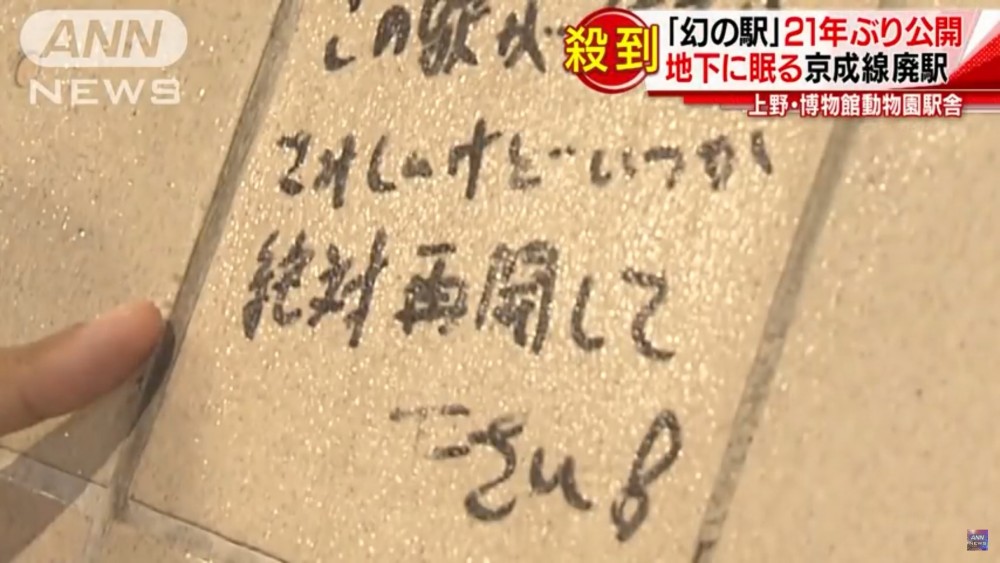 ANN
NEWS
殺到
「幻の駅」21年ぶり公開
地下に眠る京成線廃駅
上野・博物館動物園駅舎
この駅が
さみしいけどいつか
絶対再開して
下さい
ANN
NEWS